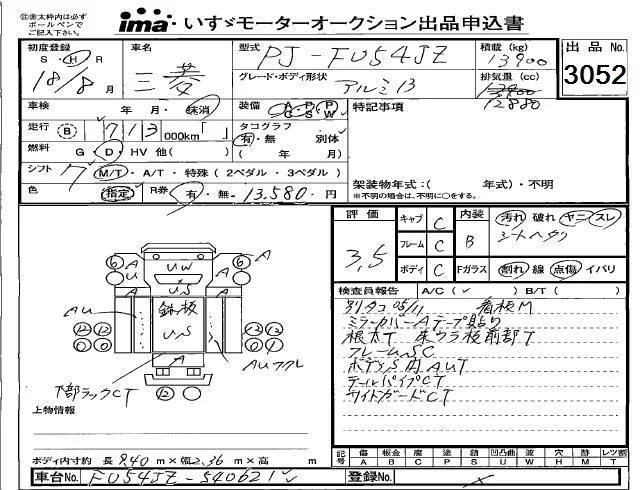 ㊟赤太枠内は必ず
ボールペンで
ご記入下さい。
ima いすゞモーターオークション出品申込書
初度登録
S・H・R
18/8月
車名
三菱
型式
PJ-FU54JZ
グレード・ボディ形状
アルミ13
積載(kg)
13900
排気量(cc)
12880
出品No.
3052
車検
年 月・抹消
装備
A・P・P
C S W
特記事項
走行
713 000km「 」
タコグラフ
有・無 別体
( 年 月)
燃料
G・D・HV 他( )
シフト 7 M/T・A/T・特殊(2ペダル・3ペダル)
架装物年式:( 年式)・不明
※不明の場合は、不明に○をする。
色
指定
R券
有・無-13,580-円
評価
3,5
キャブ C
フレーム C
ボディ C
内装
B
Fガラス
汚れ 破れ ヤニ スレ
シートヘタリ
割れ 線 点傷 イバリ
検査員報告 A/C(✓) B/T( )
別タコ 05/11 看板M
ミラーカバーAテープ貼り
根太T 床ウラ板前部T
フレームSC
ボディS内AUT
テールパイプCT
サイドガードCT
A A
UW
US
鉄板
US
AU
AUフクレ
A
下部ラックCT
上物情報
ボディ内寸約 長9.40m×幅2.36m×高 m
記号
傷 板金 腐 塗 錆 凹凸曲 波 穴 跡 レツ割
A B C P S U W H M T
車台No. FU54JZ-540621
登録No.